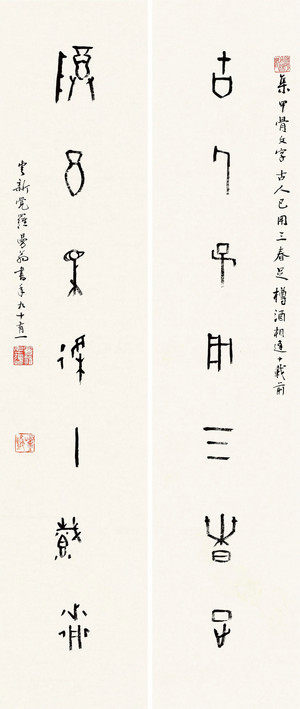 集甲骨文字 古人已用三春足 樽酒相逢十載前
古人已用三春足
尊酒相逢十載前
愛新覺羅曼翁書年九十有一